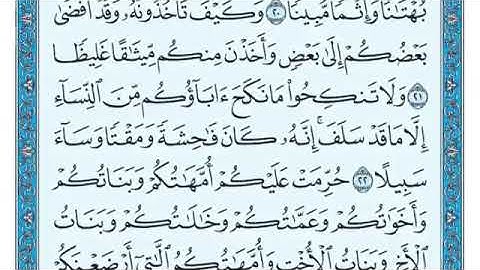 بُهْتَٰنًا وَإِثْمًا مُّبِينًا ﴿٢٠﴾ وَكَيْفَ تَأْخُذُونَهُۥ وَقَدْ أَفْضَىٰ
بَعْضُكُمْ إِلَىٰ بَعْضٍ وَأَخَذْنَ مِنكُم مِّيثَٰقًا غَلِيظًا
﴿٢١﴾ وَلَا تَنكِحُوا۟ مَا نَكَحَ ءَابَآؤُكُم مِّنَ ٱلنِّسَآءِ
إِلَّا مَا قَدْ سَلَفَ ۚ إِنَّهُۥ كَانَ فَٰحِشَةً وَمَقْتًا وَسَآءَ
سَبِيلًا ﴿٢٢﴾ حُرِّمَتْ عَلَيْكُمْ أُمَّهَٰتُكُمْ وَبَنَاتُكُمْ
وَأَخَوَٰتُكُمْ وَعَمَّٰتُكُمْ وَخَٰلَٰتُكُمْ وَبَنَاتُ
ٱلْأَخِ وَبَنَاتُ ٱلْأُخْتِ وَأُمَّهَٰتُكُمُ ٱلَّٰتِىٓ أَرْضَعْنَكُمْ